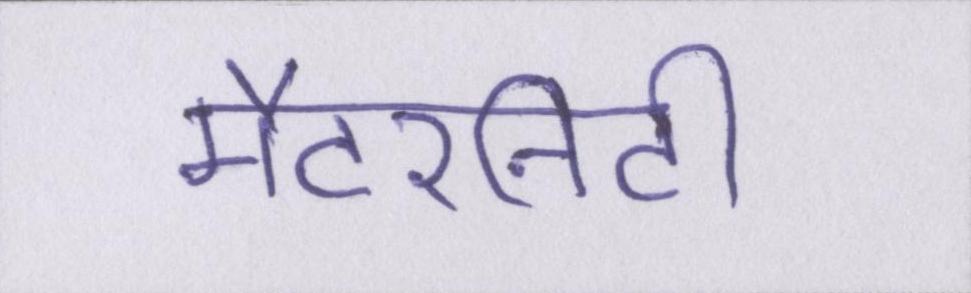 मैटरनिटी